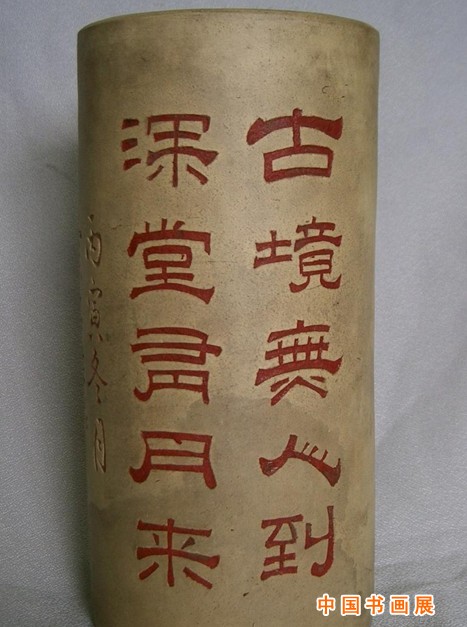 古境無人到
深堂有月来
丙寅冬月
中国书画展